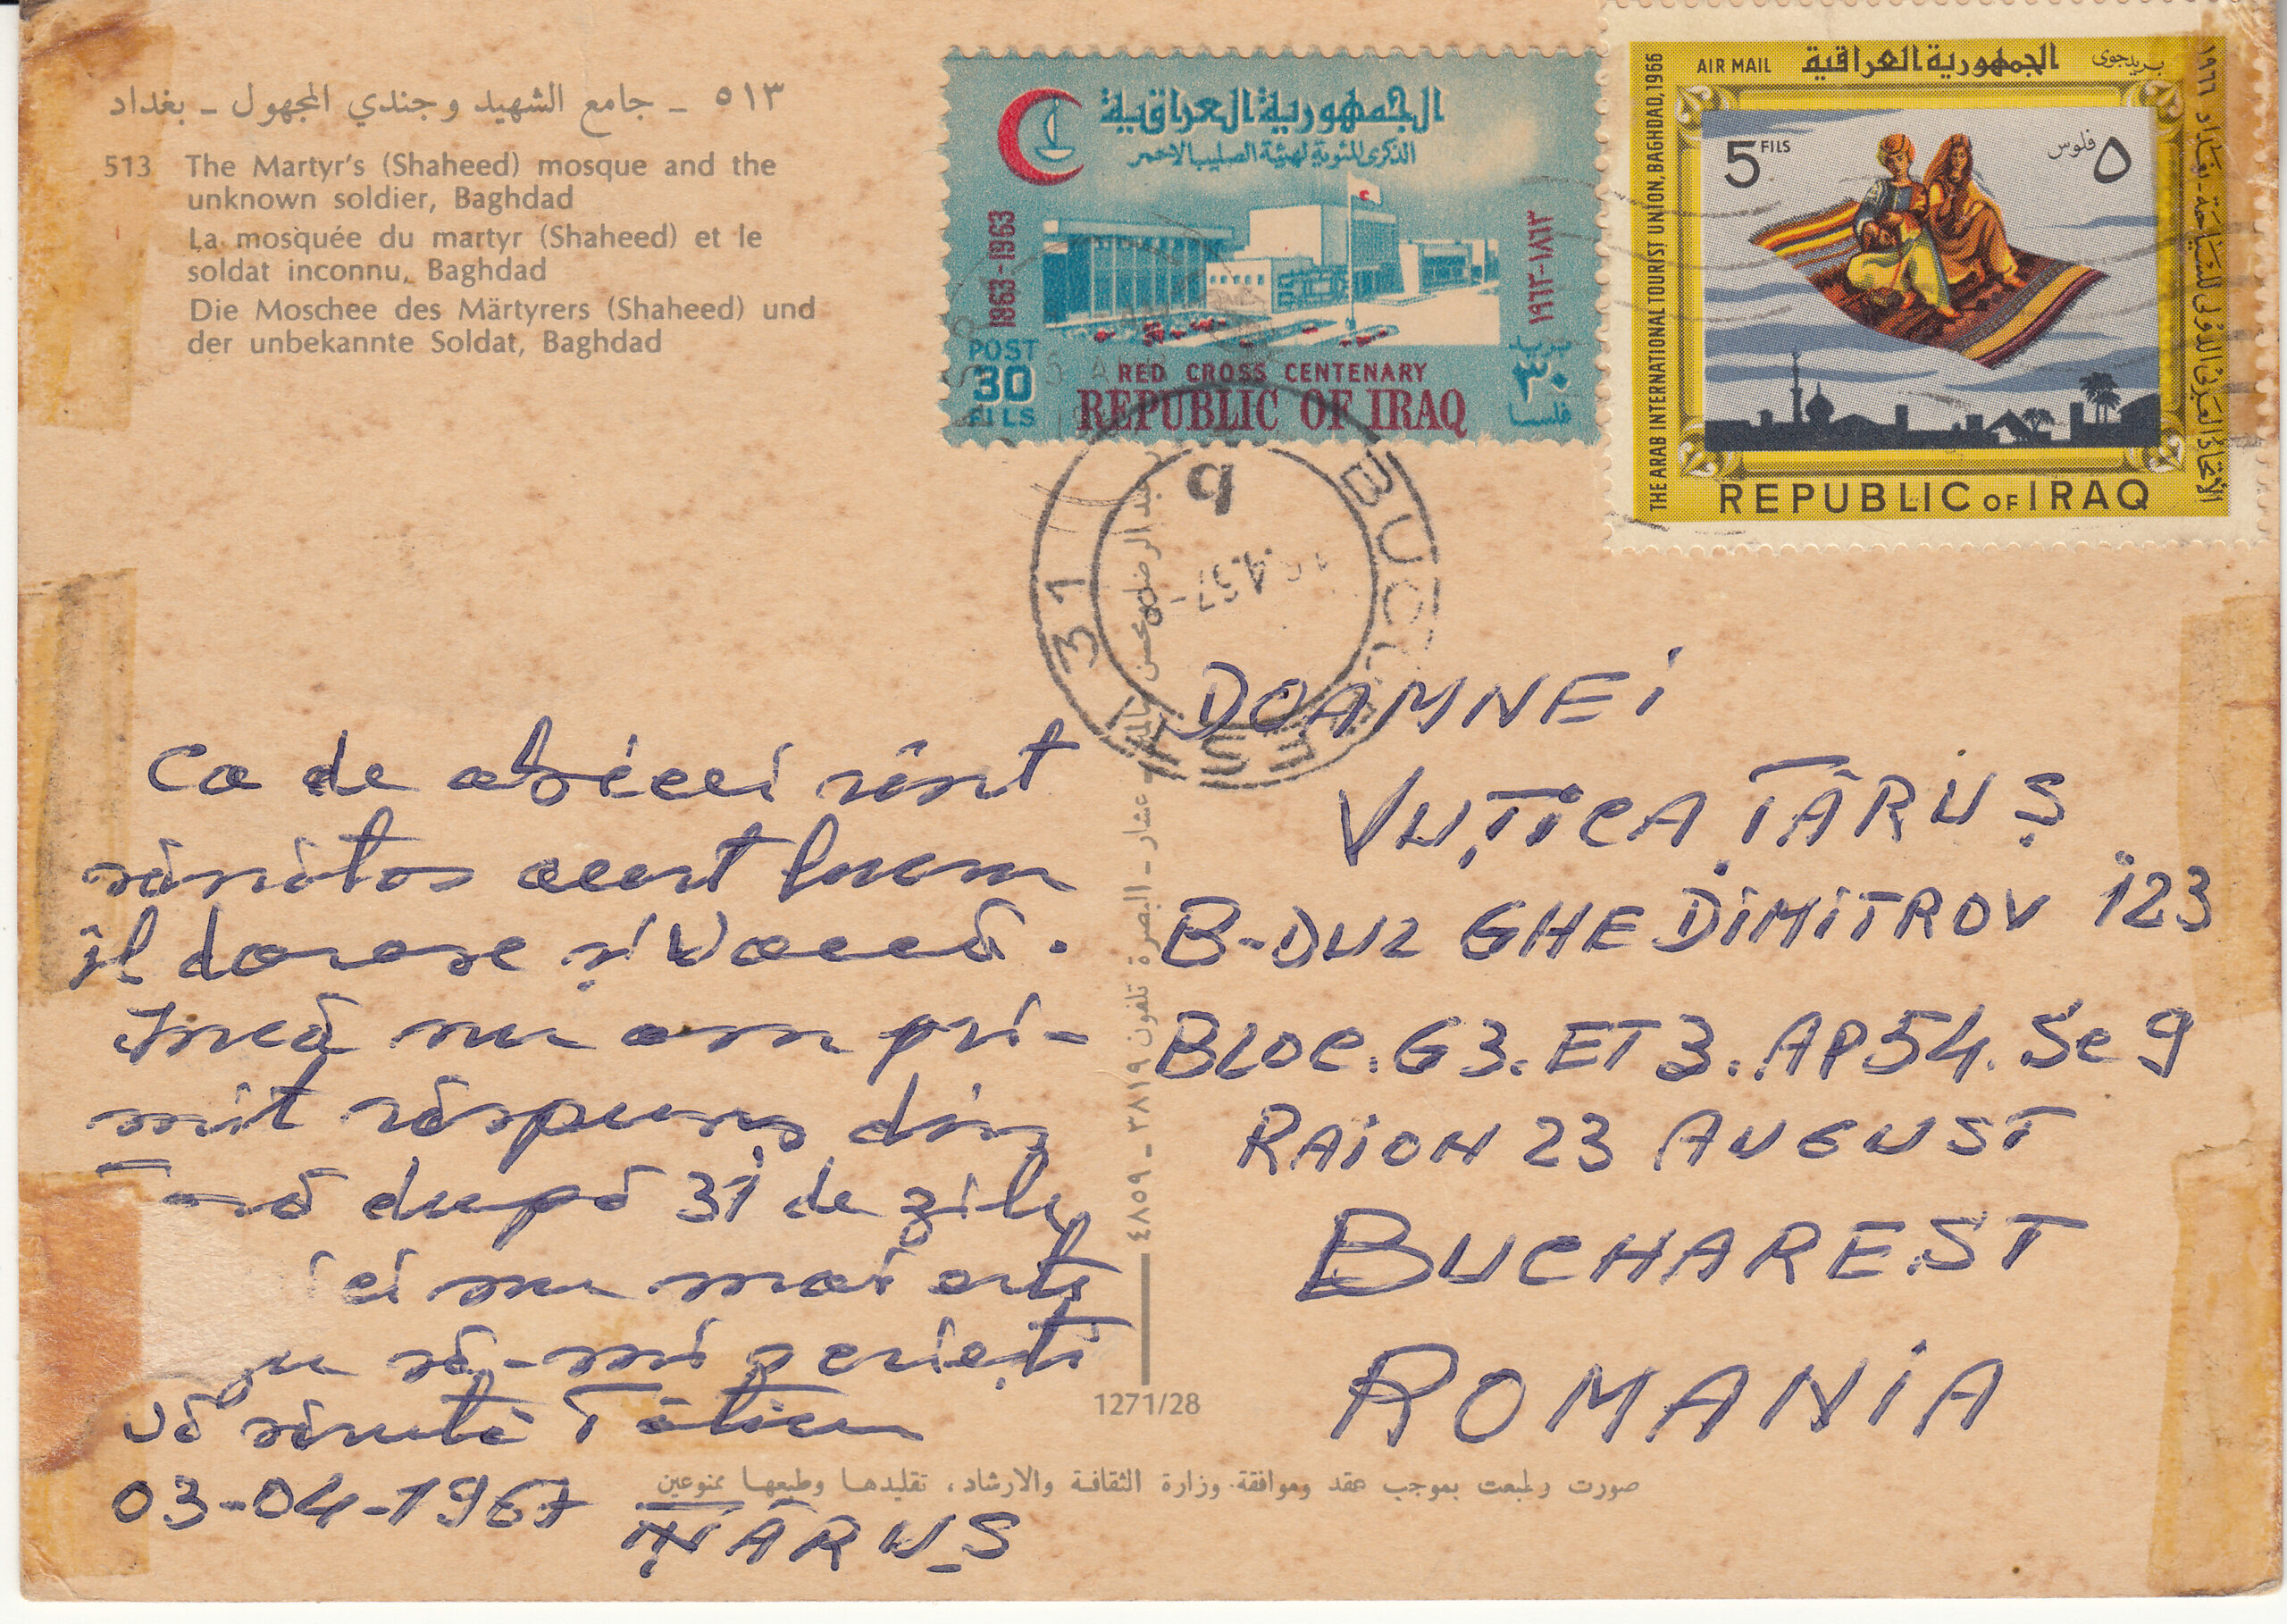 ٥١٣ ـ جامع الشهيد وجندي المجهول ـ بغداد
513 The Martyr's (Shaheed) mosque and the
unknown soldier, Baghdad
La mosquée du martyr (Shaheed) et le
soldat inconnu, Baghdad
Die Moschee des Märtyrers (Shaheed) und
der unbekannte Soldat, Baghdad
الجمهورية العراقية
الذكرى المئوية لهيئة الصليب الاحمر
1863-1963
١٨٦٣-١٩٦٣
POST
30
FILS
بريد
٣٠
فلسا
RED CROSS CENTENARY
REPUBLIC OF IRAQ
AIR MAIL
الجمهورية العراقية
بريد جوي
5 FILS
٥ فلوس
THE ARAB INTERNATIONAL TOURIST UNION, BAGHDAD, 1966
الاتحاد العربي الدولي للسياحة - بغداد ١٩٦٦
REPUBLIC OF IRAQ
31
9
Ca de obicei sînt
sănătos acest lucru
îl doresc și vouă.
Încă nu am pri-
mit răspuns din
după 31 de zile
ei nu mai
să-mi
vă sărută Tăticu
03-04-1967
ȚÂRUȘ
DOAMNEI
VUȚICA ȚÂRUȘ
B-DUL GHE DIMITROV 123
BLOC. G3. ET 3. AP 54. Sc 9
RAION 23 AUGUST
BUCHAREST
ROMANIA
عشار ـ البصرة تلفون ٣٨١٩ ـ ٤٨٥٩
1271/28
صورت وطبعت بموجب عقد وموافقة وزارة الثقافة والارشاد، تقليدها وطبعها ممنوعين